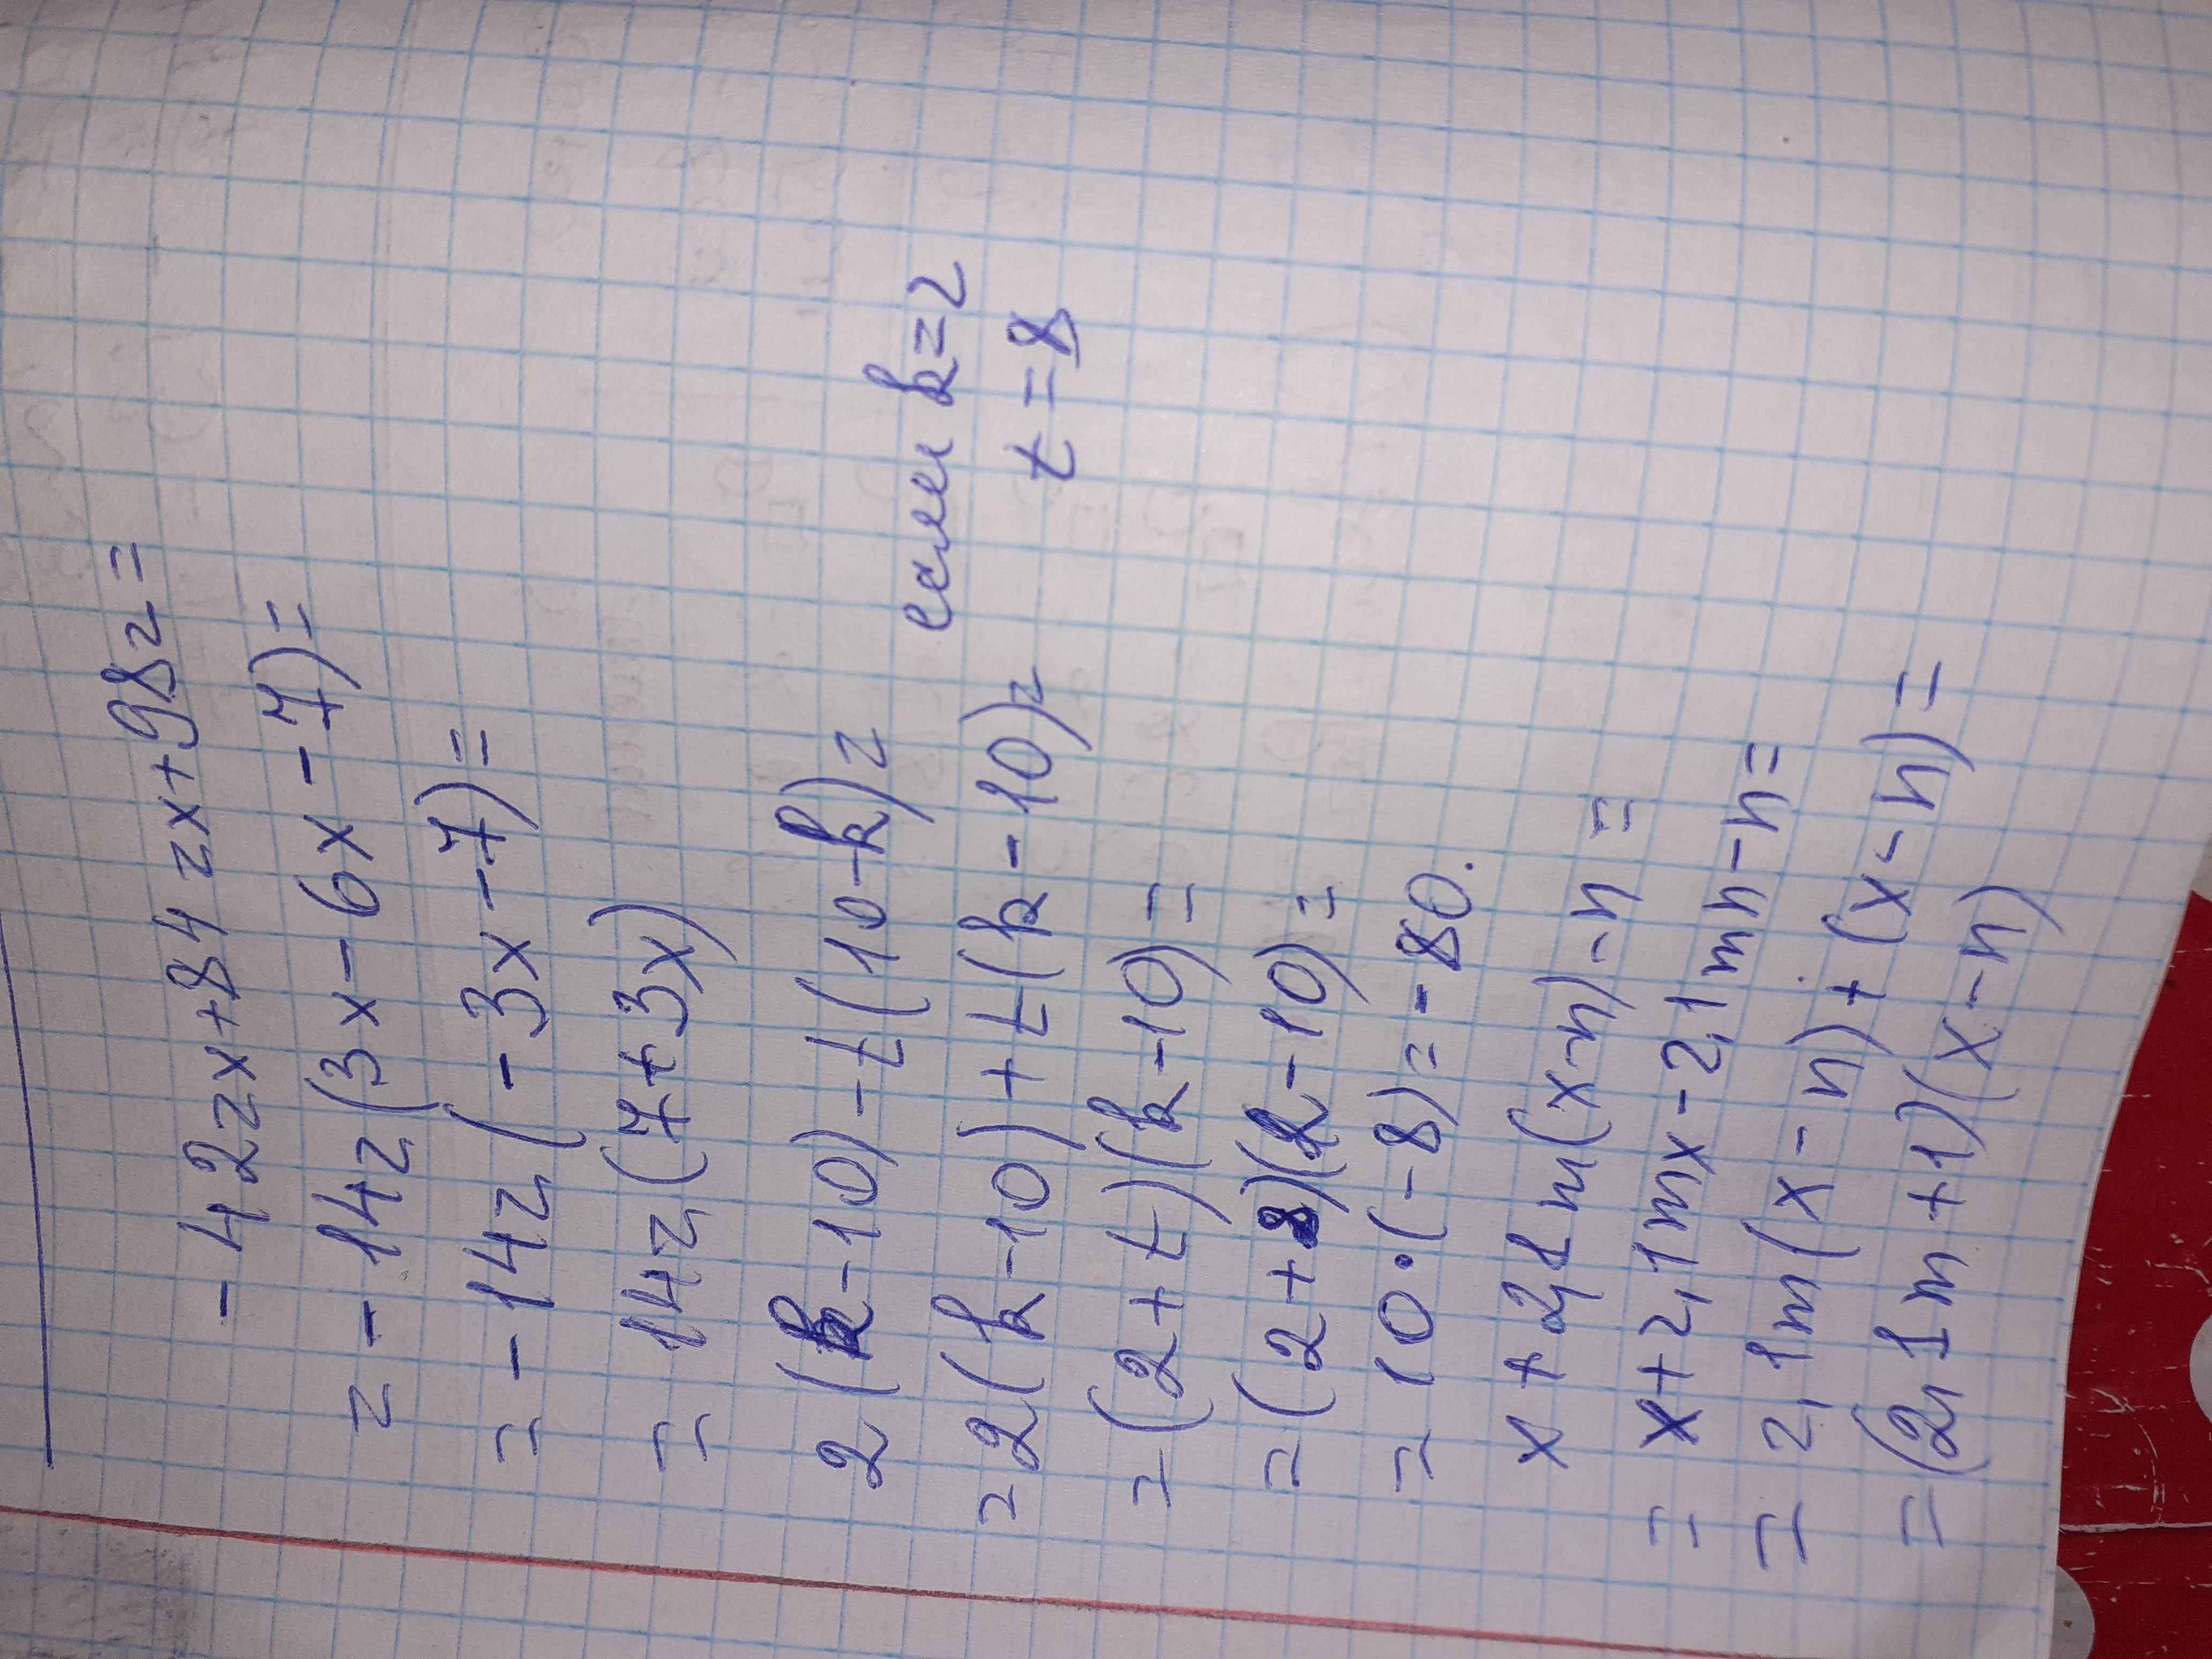 -42zx+84zx+98z=
=-14z(3x-6x-7)=
=-14z(-3x-7)=
=14z(7+3x)
2(k-10)-t(10-k)= если k=2
=2(k-10)+t(k-10)= t=8
=(2+t)(k-10)=
=(2+8)(2-10)=
=10·(-8)=-80.
x+2,1m(x-n)-n=
=x+2,1mx-2,1mn-n=
=2,1m(x-n)+(x-n)=
=(2,1m+1)(x-n)